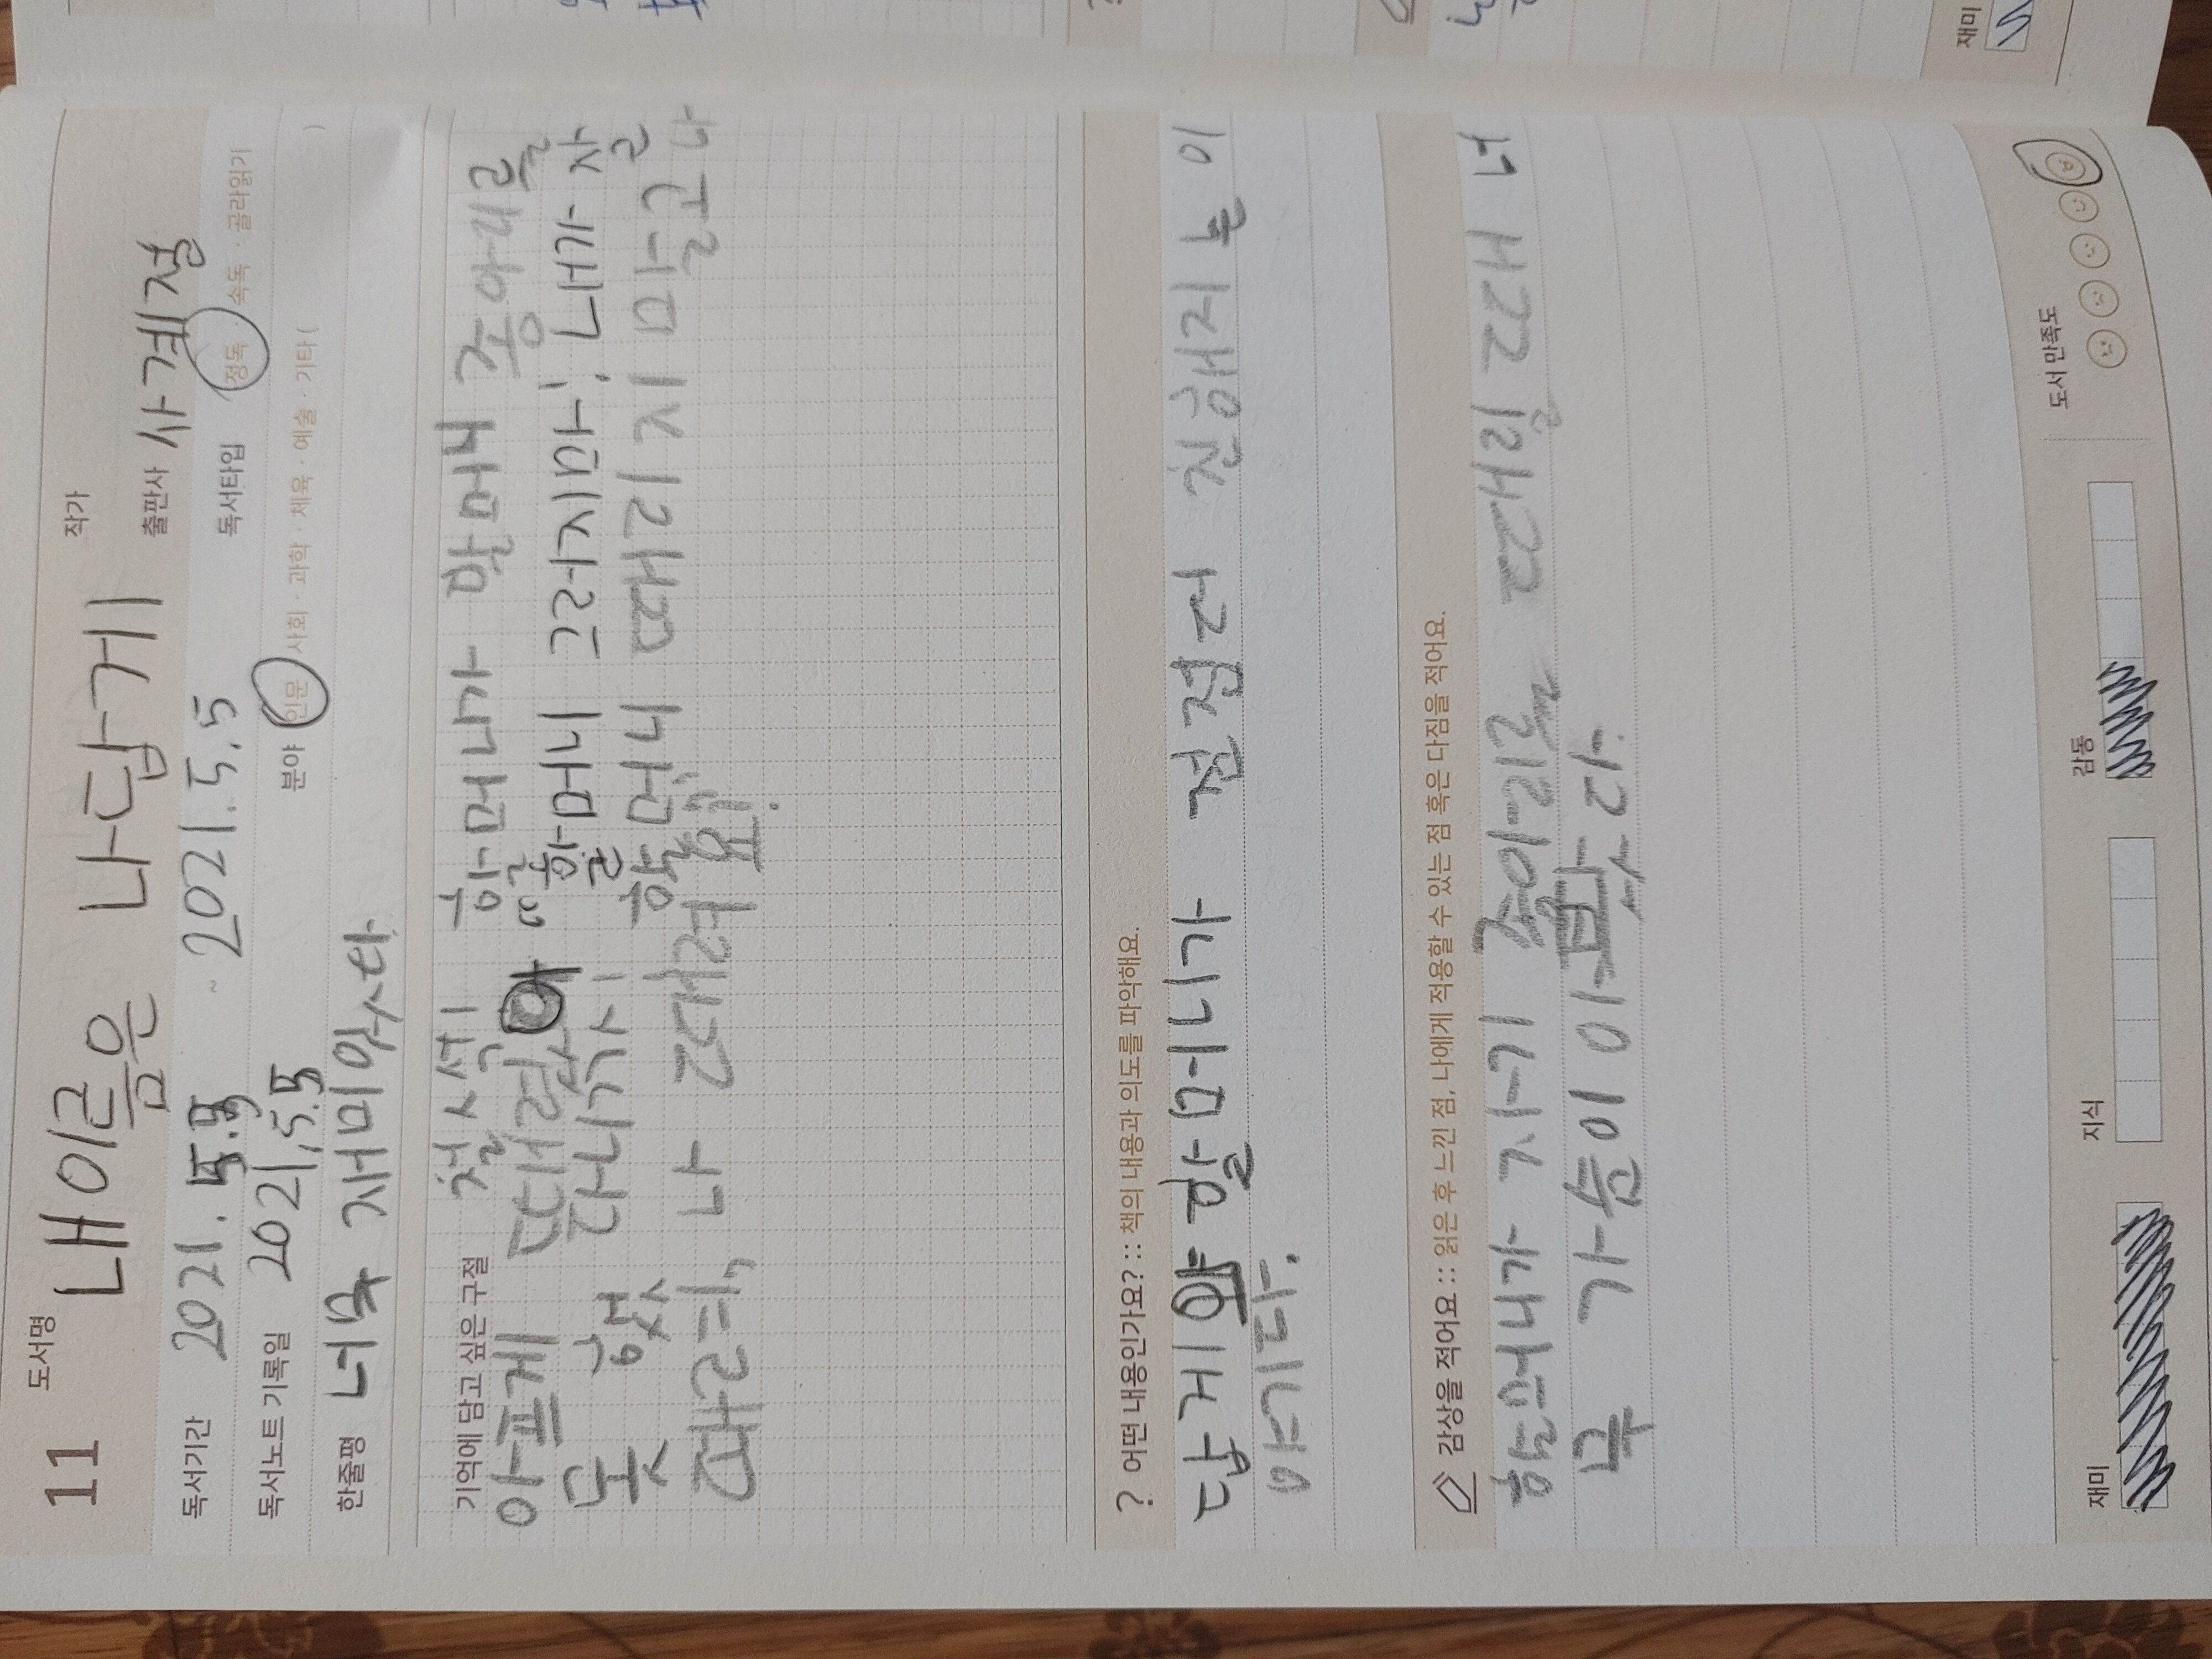 11
도서명 내이름은 나답게 작가
출판사 사계절
독서기간 2021. 5.5 ~ 2021. 5. 5 독서타입 정독 · 속독 · 골라읽기
독서노트 기록일 2021, 5.5 분야 인문 · 사회 · 과학 · 체육 · 예술 · 기타 ( )
한줄평 너무 재미있었다
기억에 담고 싶은 구절 철썩! 할머니가 할머니 종아리를
아프게 때렸어 "할머니 그러지마, 내가 잘
못 할머니 때리지 말고 나
때려, 나 때려요!"
? 어떤 내용인가요? :: 책의 내용과 의도를 파악해요.
답게와 할머니가 점점더 친해지는 이
야기다.
감상을 적어요 :: 읽은 후 느낀 점, 나에게 적용할 수 있는 점 혹은 다짐을 적어요.
할머니가 자기 종아리를 때릴때 너
무 가슴이 아팠다.
재미 지식 감동 도서 만족도
재미